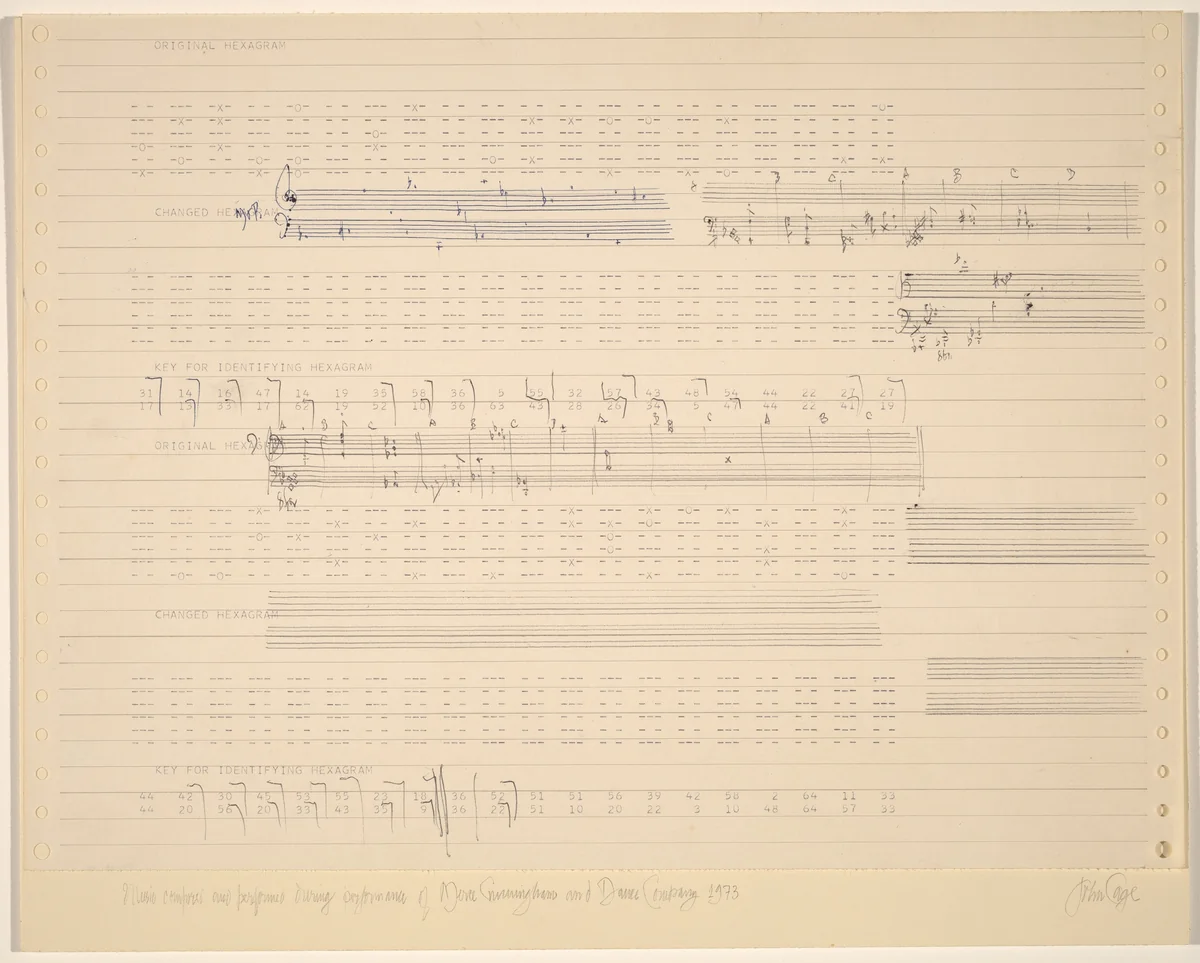 ORIGINAL HEXAGRAM
A B C A B C D
CHANGED HEXAGRAM
8br
KEY FOR IDENTIFYING HEXAGRAM
31 14 16 47 14 19 35 58 36 5 55 32 57 43 48 54 44 22 27 27
17 13 33 17 62 19 52 10 36 63 43 28 26 34 5 47 44 22 41 19
A B C A B C D A B C A B C
ORIGINAL HEXAGRAM
CHANGED HEXAGRAM
KEY FOR IDENTIFYING HEXAGRAM
44 42 30 45 53 55 23 18 36 52 51 51 56 39 42 58 2 64 11 33
44 20 56 20 33 43 35 9 36 22 51 10 20 22 3 10 48 64 57 33
Music composed and performed during performance of Merce Cunningham and Dance Company 1973
John Cage